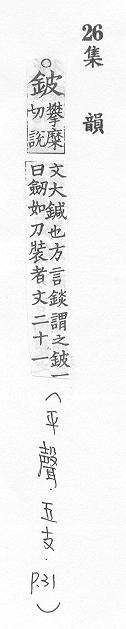 26集韻
○鈹攀糜切說
文大鍼也方言錟謂之鈹一
曰劒如刀裝者文二十一
(平聲.五支.P.31)